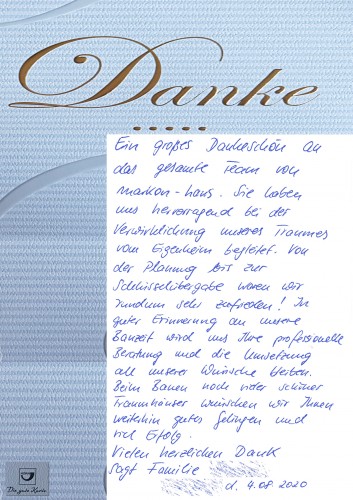 Danke
.....
Ein großes Dankeschön an
das gesamte Team von
markon-haus. Sie haben
uns hervorragend bei der
Verwirklichung unseres Traumes
vom Eigenheim begleitet. Von
der Planung bis zur
Schlüsselübergabe waren wir
rundum sehr zufrieden! In
guter Erinnerung an unsere
Bauzeit wird uns Ihre professionelle
Beratung und die Umsetzung
all unserer Wünsche bleiben.
Beim Bauen noch vieler schöner
Traumhäuser wünschen wir Ihnen
weiterhin gutes Gelingen und
viel Erfolg.
Vielen herzlichen Dank
sagt Familie
d. 4.08.2020
Die gute Karte